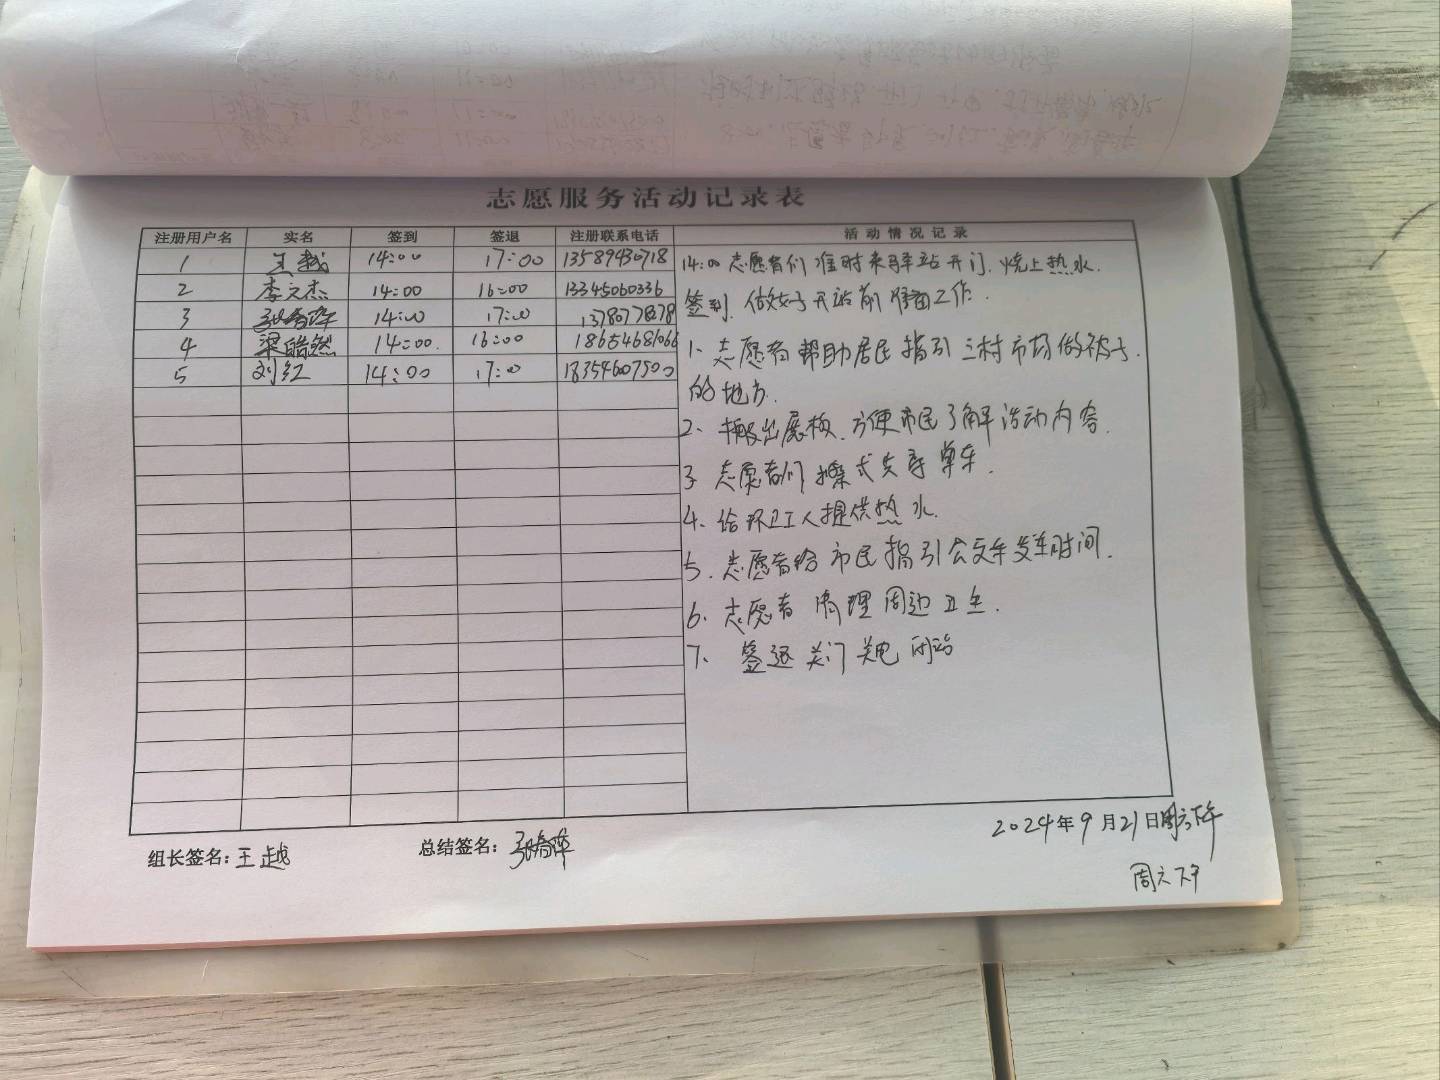 志愿服务活动记录表
注册用户名 实名 签到 签退 注册联系电话 活动情况记录
1 王越 14:00 17:00 13589430718
2 李文杰 14:00 16:00 13345060336
3 14:00 17:00
4 梁皓然 14:00 16:00 18654681066
5 刘红 14:00 17:00 18354607500
14:00 志愿者们准时来驿站开门.烧上热水.
签到.做好开站前准备工作.
1、志愿者帮助居民指引三村市场做被子.
的地方.
2、搬出展板.方便市民了解活动内容.
3 志愿者们 共享单车.
4、给环卫工人提供热水.
5.志愿者给市民指引公交车发车时间.
6、志愿者清理周边卫生.
7、签退关门关电闭站
组长签名:王越
总结签名:
2024年9月21日周六下午
周六下午